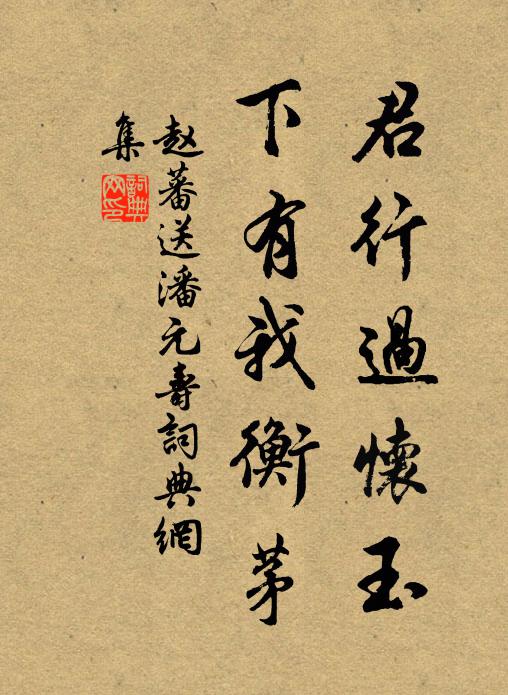 君行過懷玉
下有我衡茅
赵蕃送潘元壽詞典網
集
詞典網印